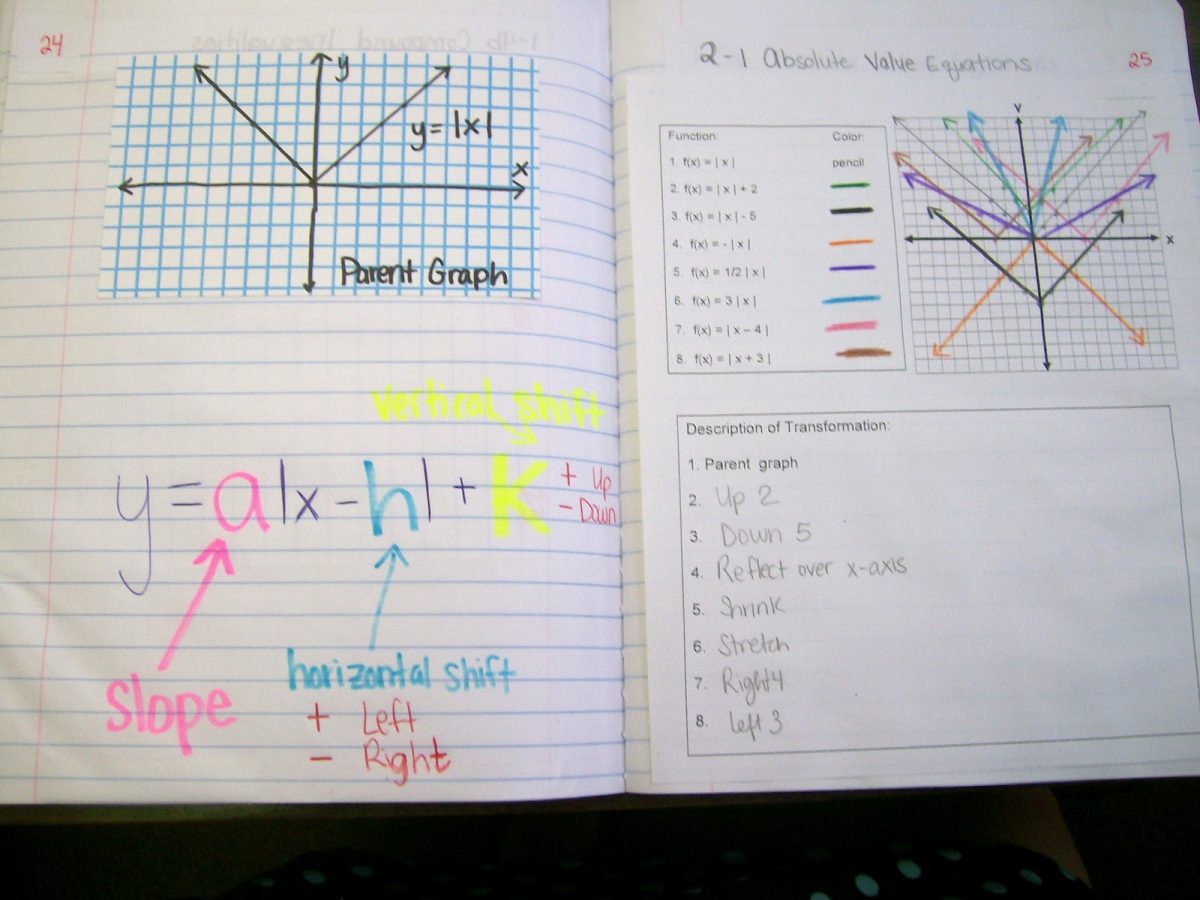 24
y
y = |x|
x
Parent Graph
vertical shift
y = a|x - h| + K
+ Up
- Down
Slope
horizontal shift
+ Left
- Right
2-1 Absolute Value Equations
25
Function: Color:
1. f(x) = | x | pencil
2. f(x) = | x | + 2
3. f(x) = | x | - 5
4. f(x) = - | x |
5. f(x) = 1/2 | x |
6. f(x) = 3 | x |
7. f(x) = | x – 4 |
8. f(x) = | x + 3 |
y
x
Description of Transformation:
1. Parent graph
2. Up 2
3. Down 5
4. Reflect over x-axis
5. Shrink
6. Stretch
7. Right 4
8. left 3